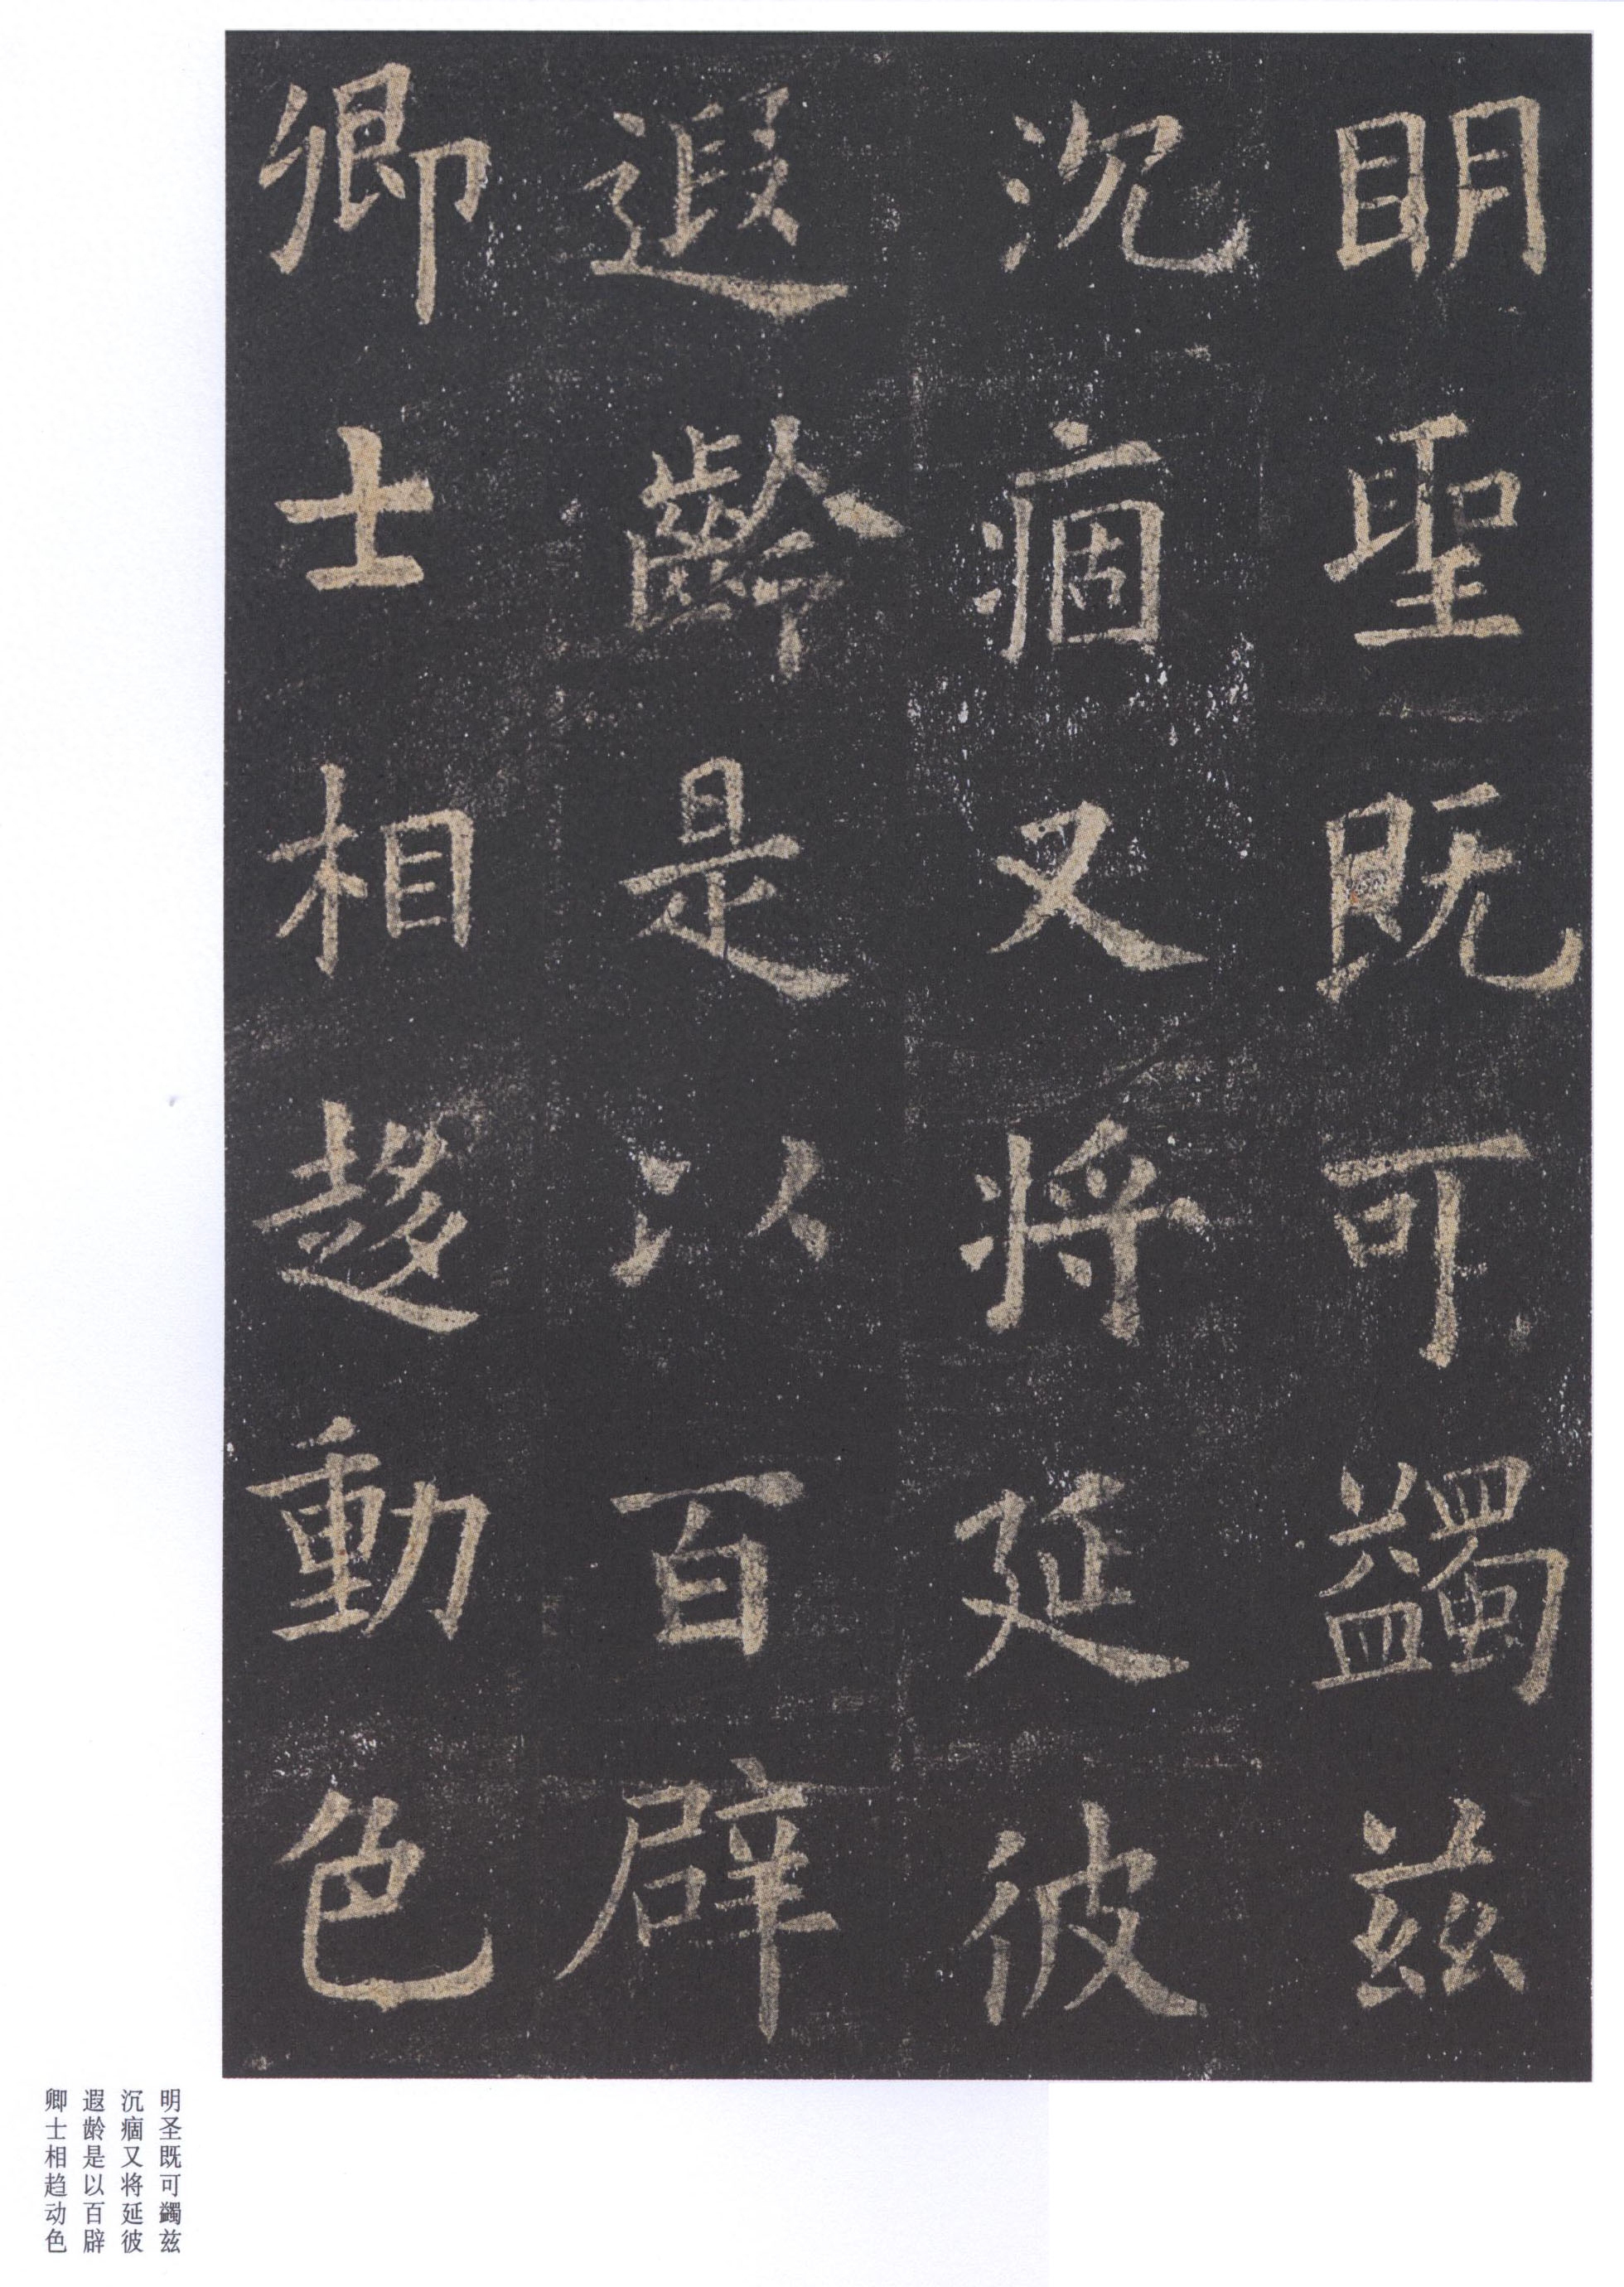 明聖既可蠲兹
沉痼又将延彼
遐齡是以百辟
卿士相趍動色
明圣既可蠲兹
沉痼又将延彼
遐龄是以百辟
卿士相趋动色